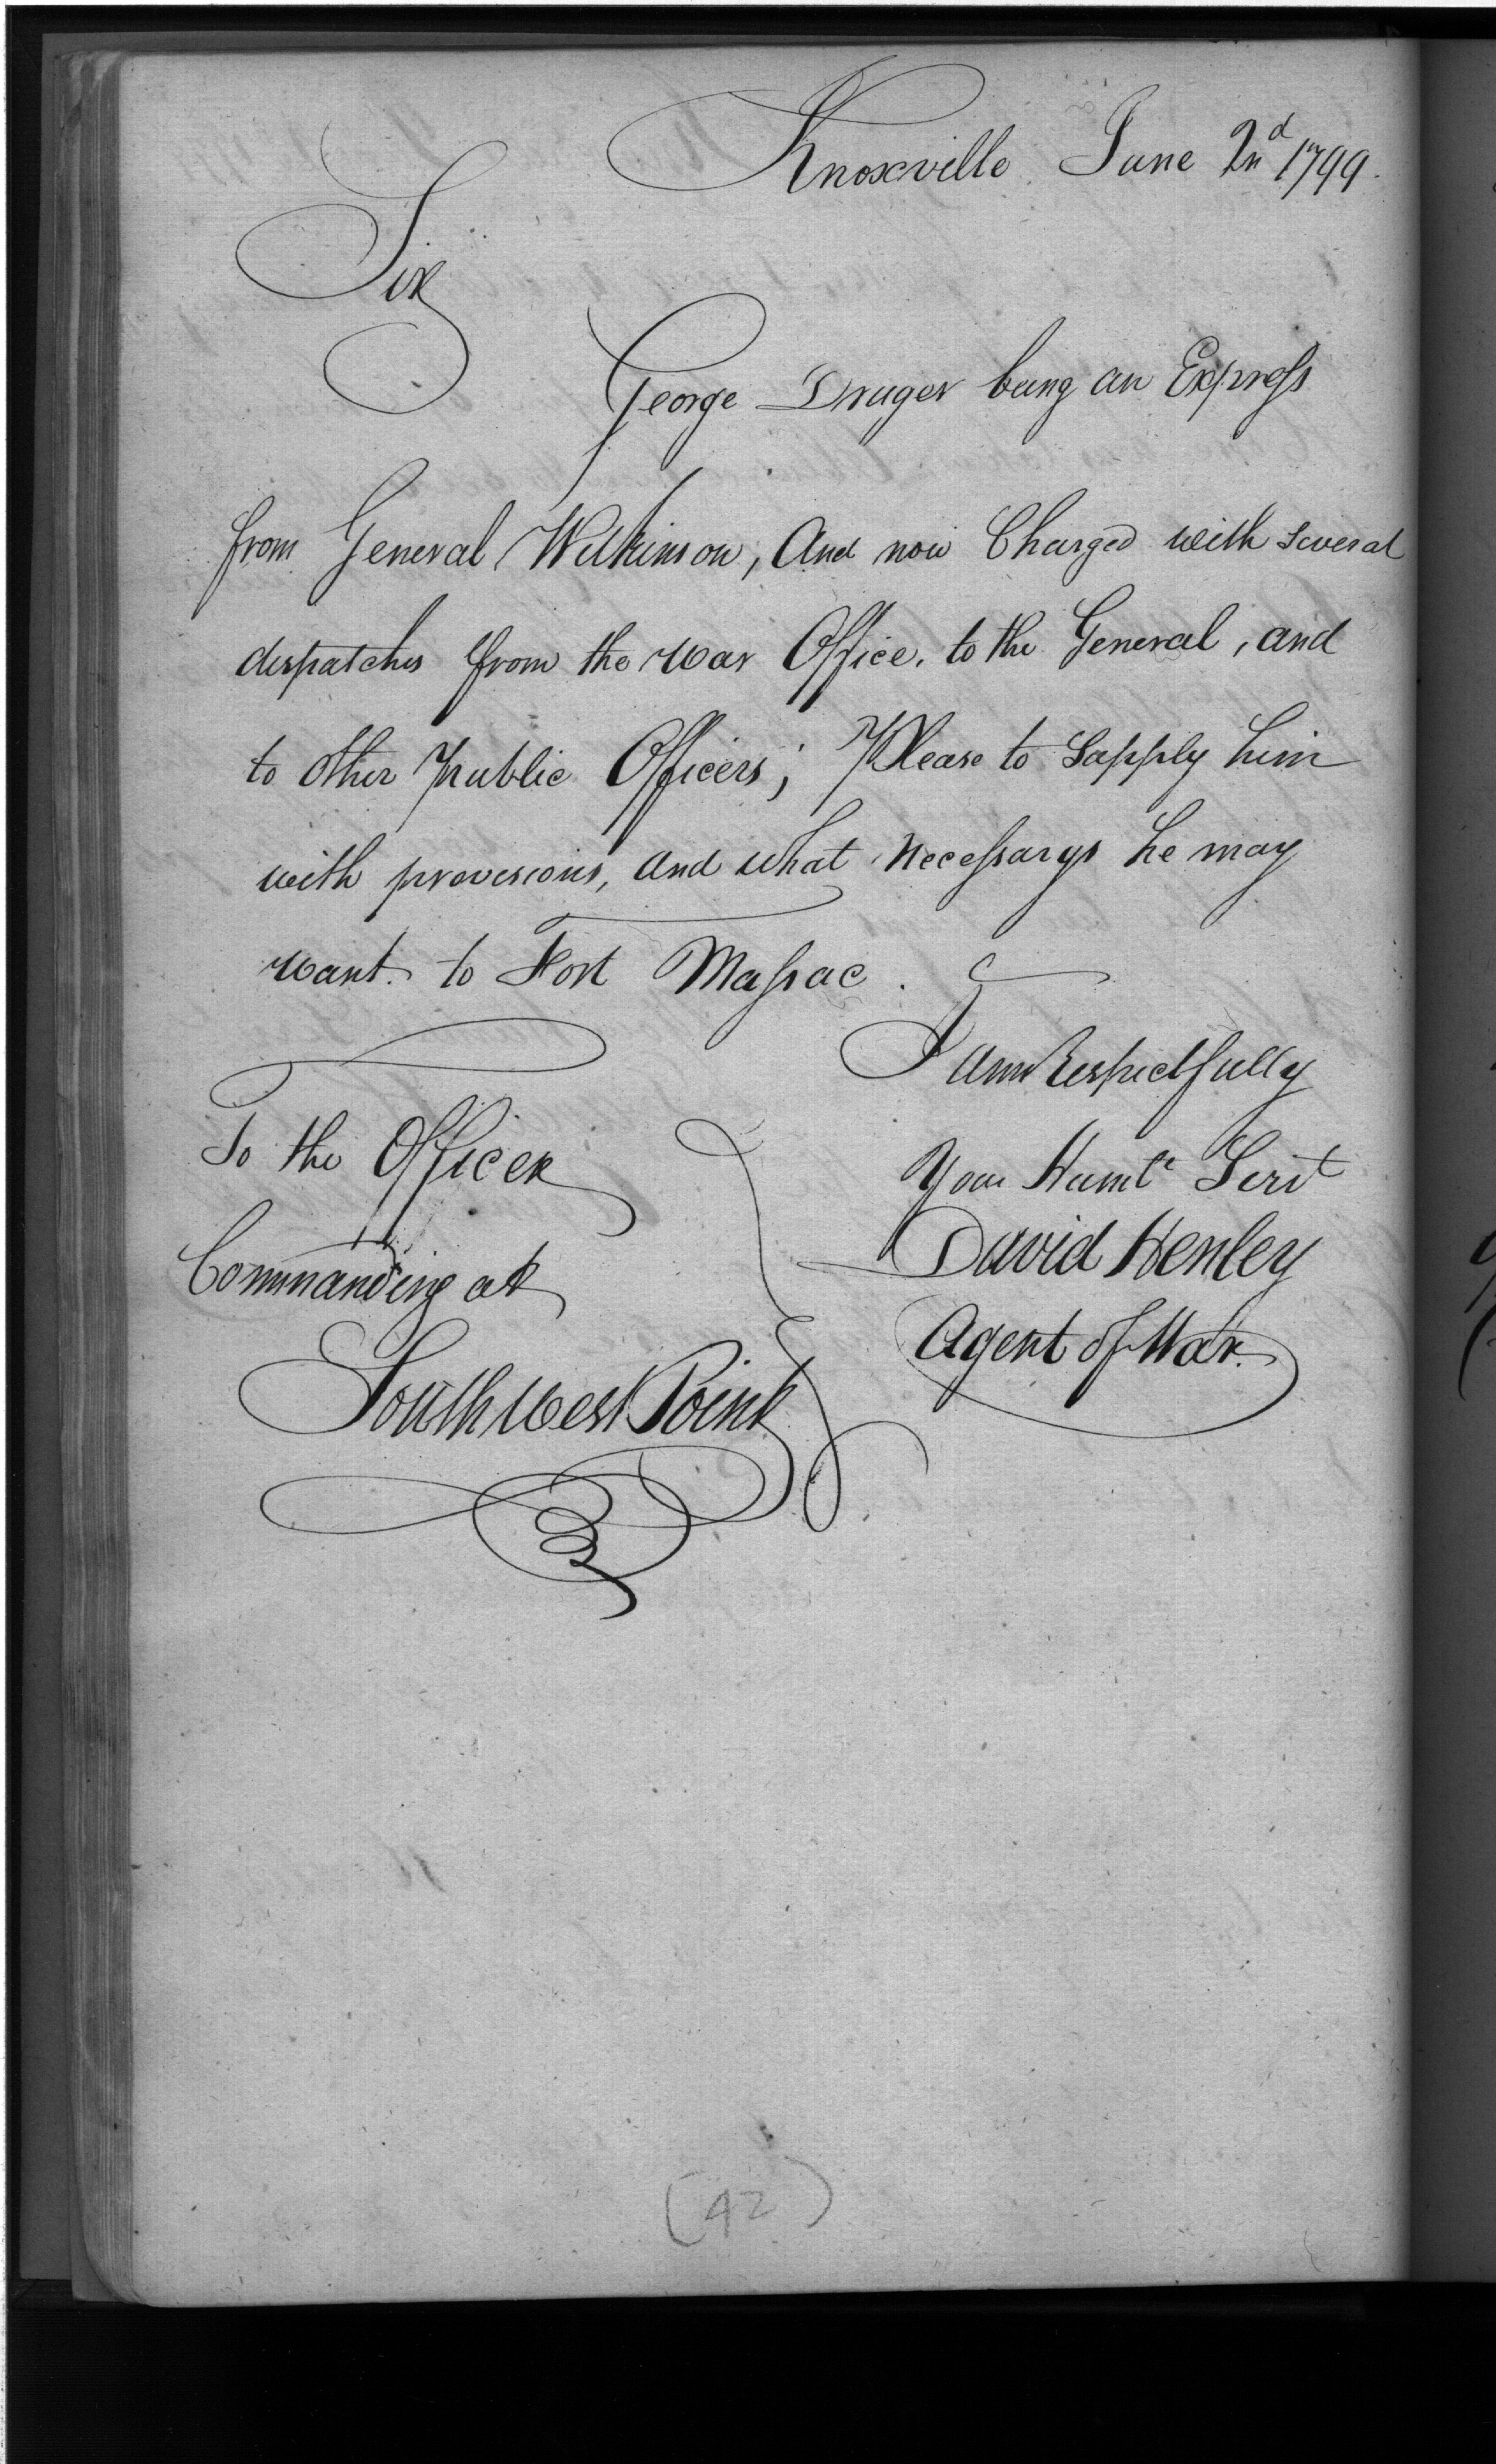 Knoxville June 2nd 1799.
Sir
George Druger being an Express
from General Wilkinson, And now Charged with several
despatches from the War Office, to the General, and
to other Public Officers; Please to Supply him
with provisions, and what necessarys he may
want to Fort Massac.
I am Respectfully
Your Humle Servt
David Henley
Agent of War.
To the Officer
Commanding at
South West Point
(42)